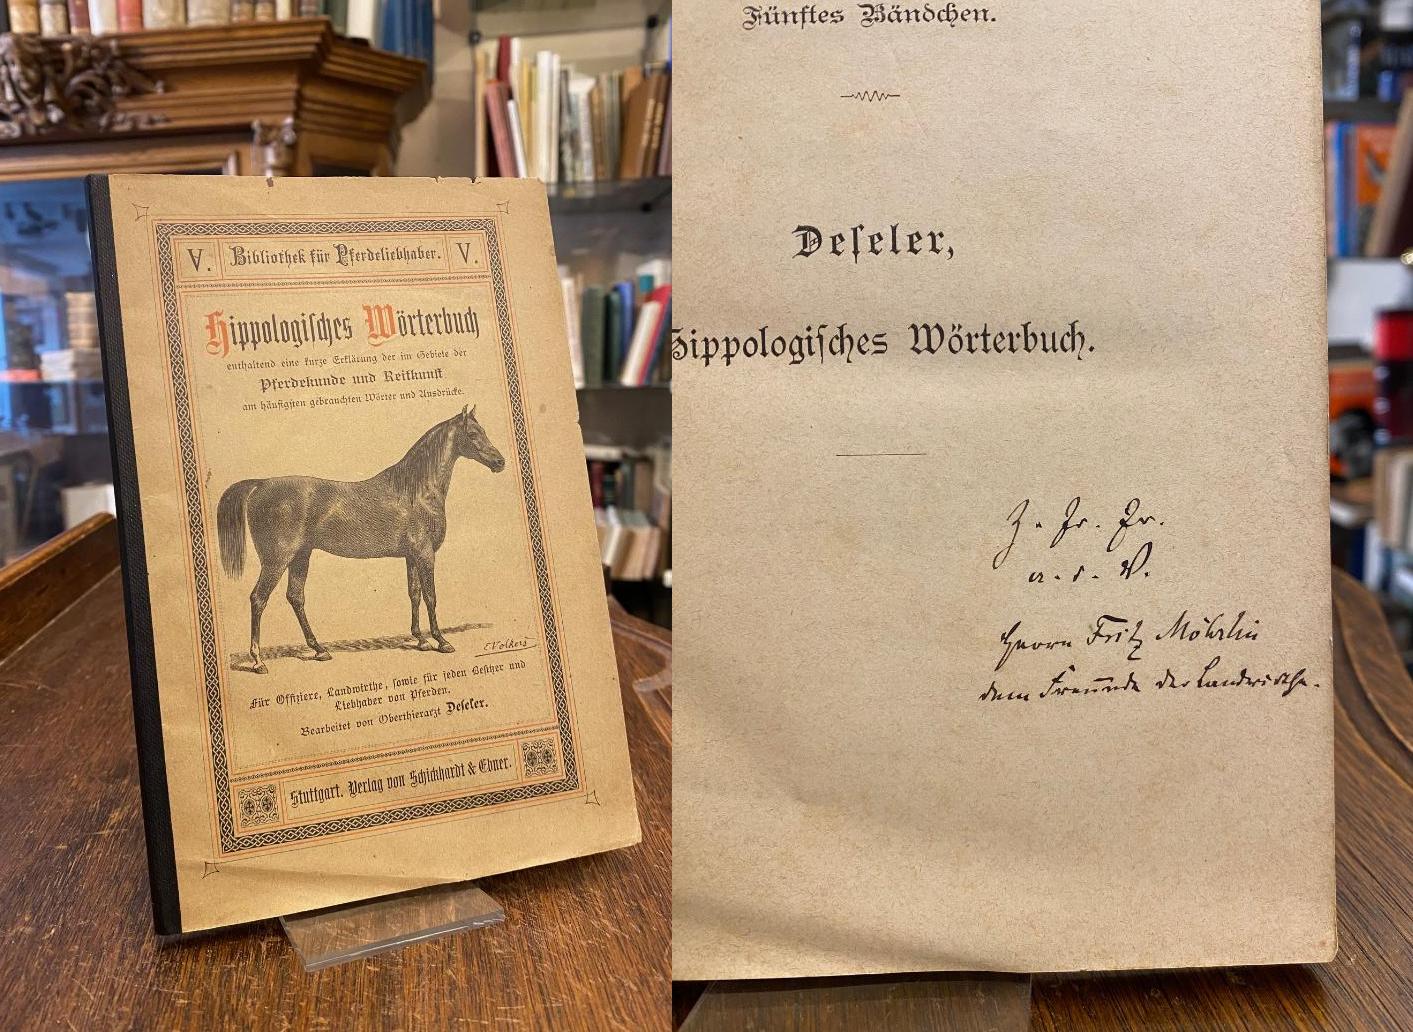 V. Bibliothek für Pferdeliebhaber. V.
Hippologiſches Wörterbuch
enthaltend eine kurze Erklärung der im Gebiete der
Pferdekunde und Reitkunſt
am häufigſten gebrauchten Wörter und Ausdrücke.
E. Volkers
Für Offiziere, Landwirthe, ſowie für jeden Beſitzer und
Liebhaber von Pferden.
Bearbeitet von Oberthierarzt Deſeler.
Stuttgart. Verlag von Schickhardt & Ebner.
Fünftes Bändchen.
Deſeler,
Hippologiſches Wörterbuch.
Z. Fr. Fr.
a. d. V.
Herrn Fritz Möhrlin
dem Freunde der Landwirthe.